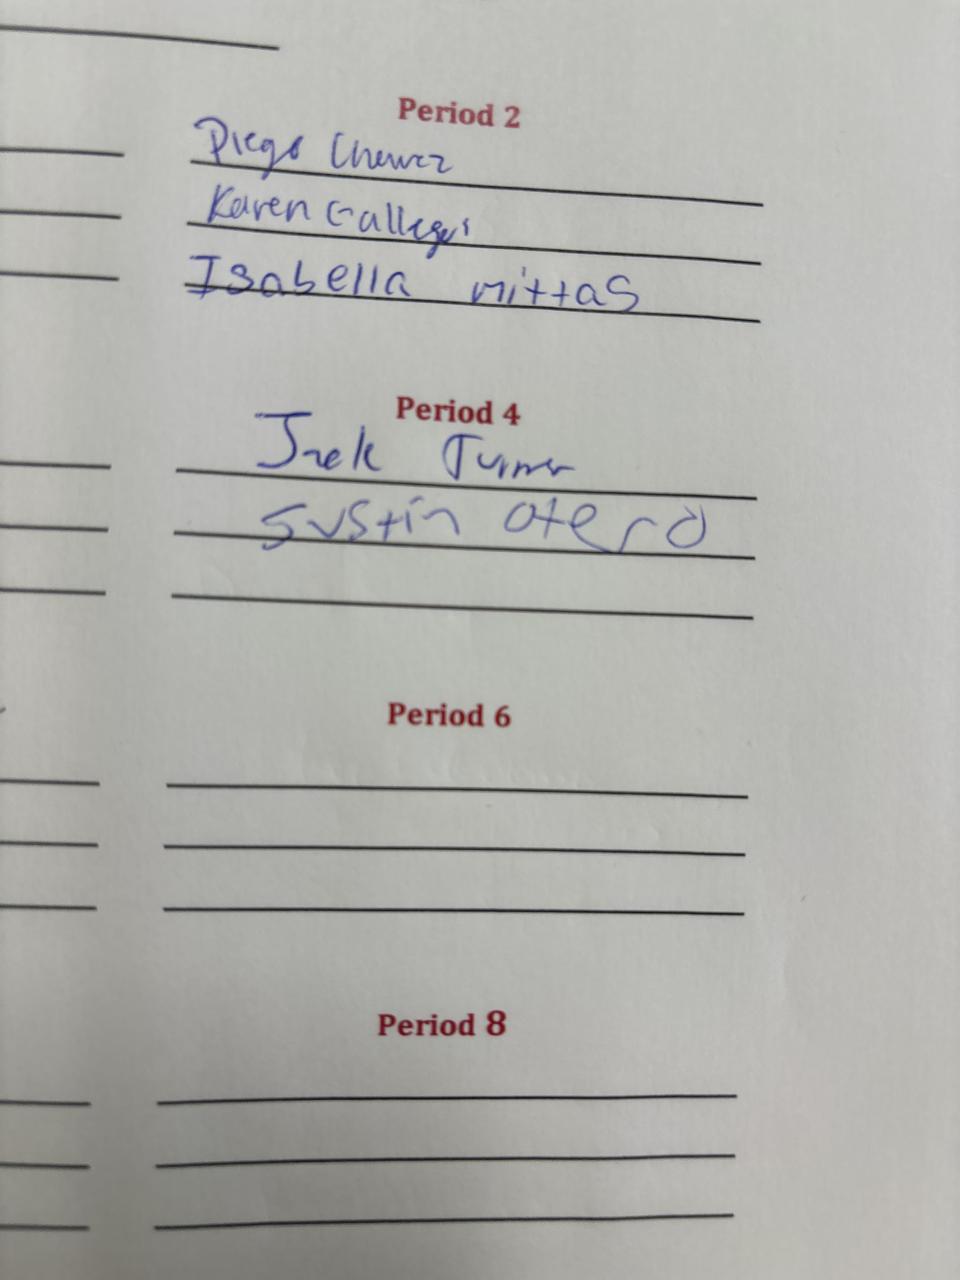 Period 2
Diego Chavez
Karen Gallegos
Isabella mittas
Period 4
Jack Turner
Justin otero
Period 6
Period 8